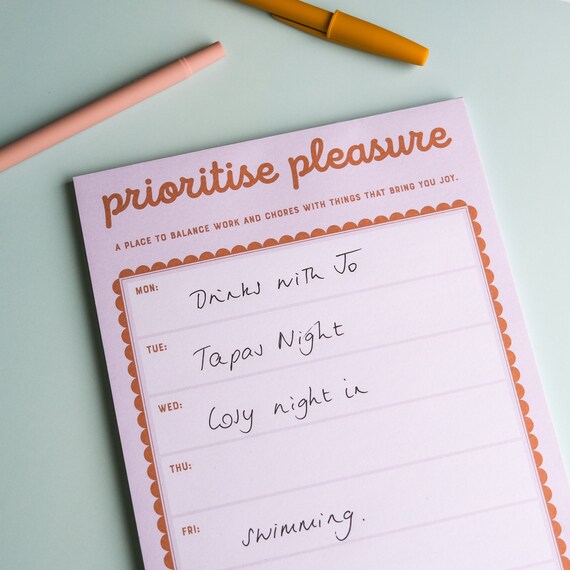 prioritise pleasure
A PLACE TO BALANCE WORK AND CHORES WITH THINGS THAT BRING YOU JOY.
MON: Drinks with Jo
TUE: Tapas Night
WED: Cosy night in
THU:
FRI: swimming.